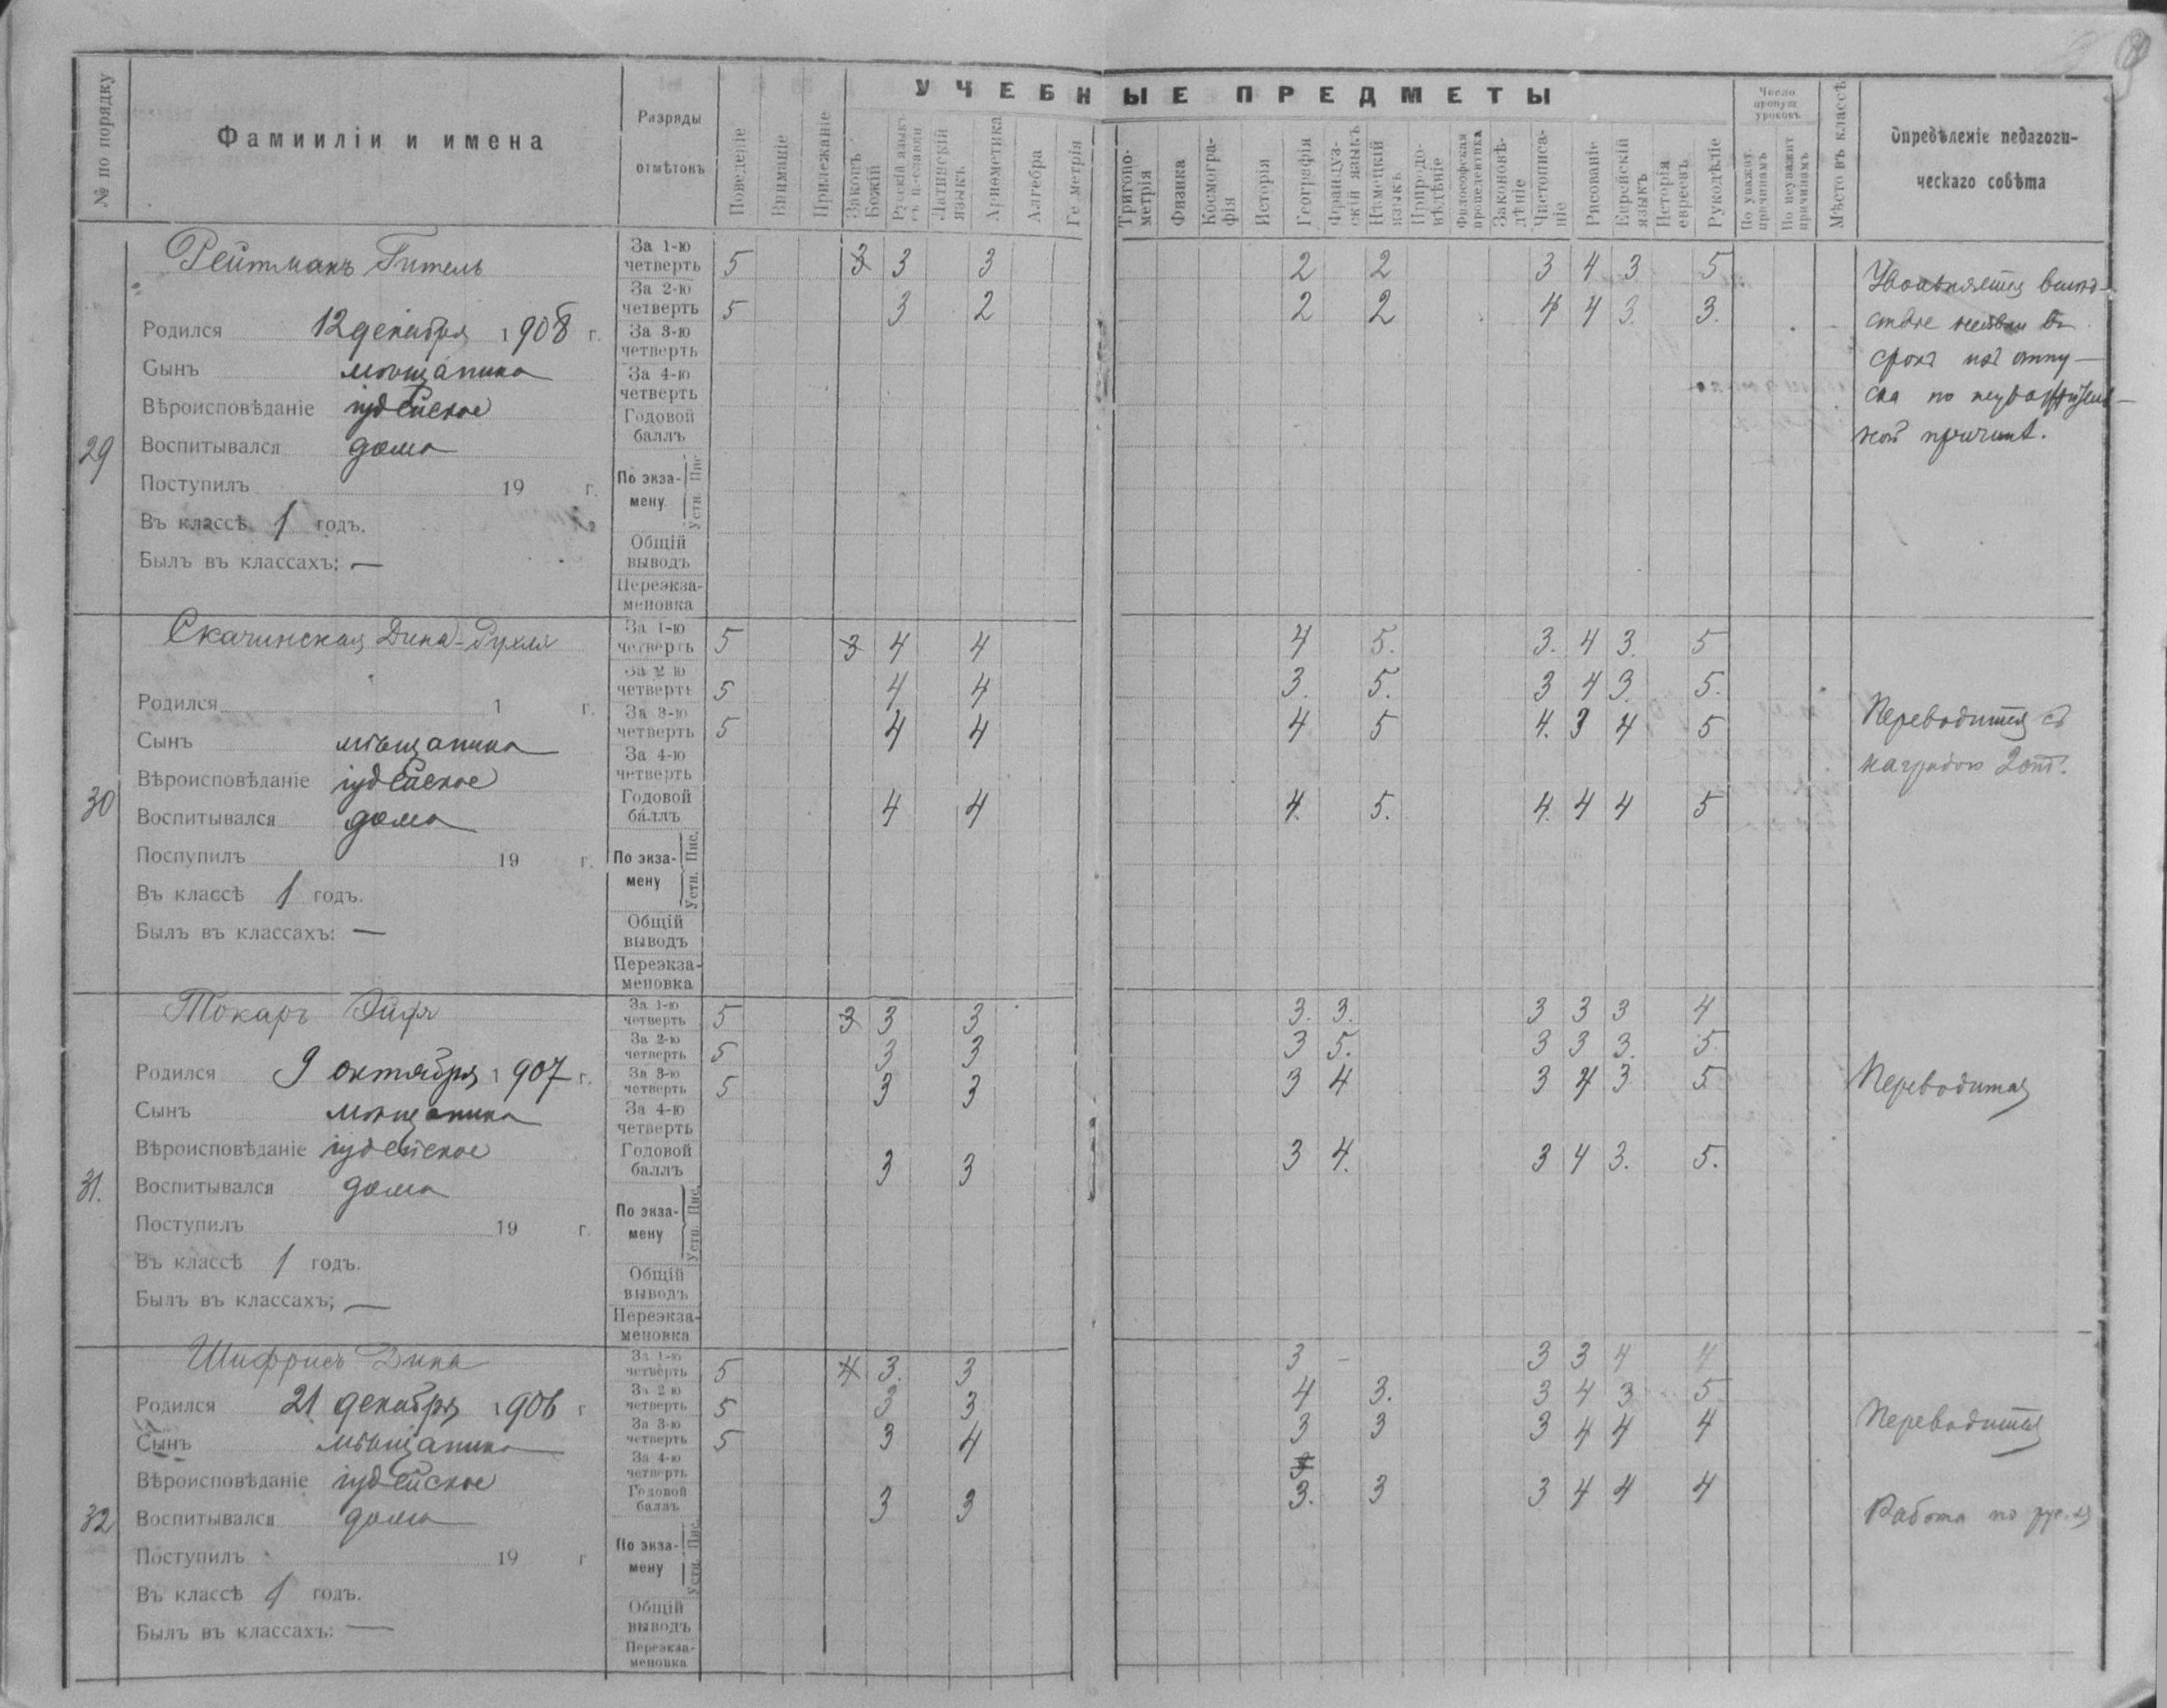 УЧЕБНЫЕ ПРЕДМЕТЫ
№ по порядку
Фамииліи и имена
Разряды
отмѣтокъ
Поведеніе
Вниманіе
Прилежаніе
Законъ Божій
Русскій языкъ съ ц.-славян
Латинскій языкъ
Ариѳметика
Алгебра
Ге метрія
Тригоно-метрія
Физика
Космогра-фія
Исторія
Географія
Француз-скій языкъ
Нѣмецкій языкъ
Природо-вѣдѣніе
Философская пропедевтика
Законовѣ-дѣніе
Чистописа-ніе
Рисованіе
Еврейскій языкъ
Исторія евреевъ
Рукодѣліе
Число пропущ уроковъ
По уважит. причинамъ
По неуважит причинамъ
Мѣсто въ классѣ
Опредѣленіе педагоги-
ческаго совѣта
29
Рейтманъ Гитель
Родился 12 декабря 1908 г.
Сынъ мѣщанина
Вѣроисповѣданіе іудейское
Воспитывался дома
Поступилъ 19 г.
Въ классѣ 1 годъ.
Былъ въ классахъ: —
За 1-ю четверть 5 3 3 3 2 2 3 4 3 5
За 2-ю четверть 5 3 2 2 2 4 4 3. 3.
За 3-ю четверть
За 4-ю четверть
Годовой баллъ
По экза-мену. Устн. Пис
Общій выводъ
Переэкза-меновка
срокъ изъ отпу-
ска по
ной причинѣ.
30
Скачинская Дина-Рухля
Родился 1 г.
Сынъ мѣщанина
Вѣроисповѣданіе іудейское
Воспитывался дома
Поспупилъ 19 г.
Въ классѣ 1 годъ.
Былъ въ классахъ: —
За 1-ю четверть 5 3 4 4 4 5. 3. 4 3. 5
За 2 ю четверть 5 4 4 3. 5. 3 4 3. 5.
За 3-ю четверть 5 4 4 4 5 4. 3 4 5
За 4-ю четверть
Годовой баллъ 4 4 4. 5. 4. 4 4 5
По экза-мену Устн. Пис.
Общій выводъ
Переэкза-меновка
Переводится съ
наградою 2 ст.
31.
Токаръ Эйдя
Родился 9 октября 1907 г.
Сынъ мѣщанина
Вѣроисповѣданіе іудейское
Воспитывался дома
Поступилъ 19 г.
Въ классѣ 1 годъ.
Былъ въ классахъ; —
За 1-ю четверть 5 3 3 3 3. 3. 3 3 3 4
За 2-ю четверть 5 3 3 3 5. 3 3 3. 5.
За 3-ю четверть 5 3 3 3 4 3 4 3 5
За 4-ю четверть
Годовой баллъ 3 3 3 4. 3 4 3. 5.
По экза-мену Устн. Пис.
Общій выводъ
Переэкза-меновка
Переводится
32
Шифрисъ Дина
Родился 21 декабря 1906 г
Сынъ мѣщанина
Вѣроисповѣданіе іудейское
Воспитывался дома
Поступилъ 19 г
Въ классѣ 1 годъ.
Былъ въ классахъ: —
За 1-ю четверть 5 4 3. 3 3 – 3 3 4 4
За 2 ю четверть 5 3 3 4 3. 3 4 3 5
За 3-ю четверть 5 3 4 3 3 3 4 4 4
За 4-ю четверть
Годовой баллъ 3 3 3. 3 3 4 4 4
По экза-мену Устн. Пис.
Общій выводъ
Переэкза-меновка
Переводится
Работа по рус. яз